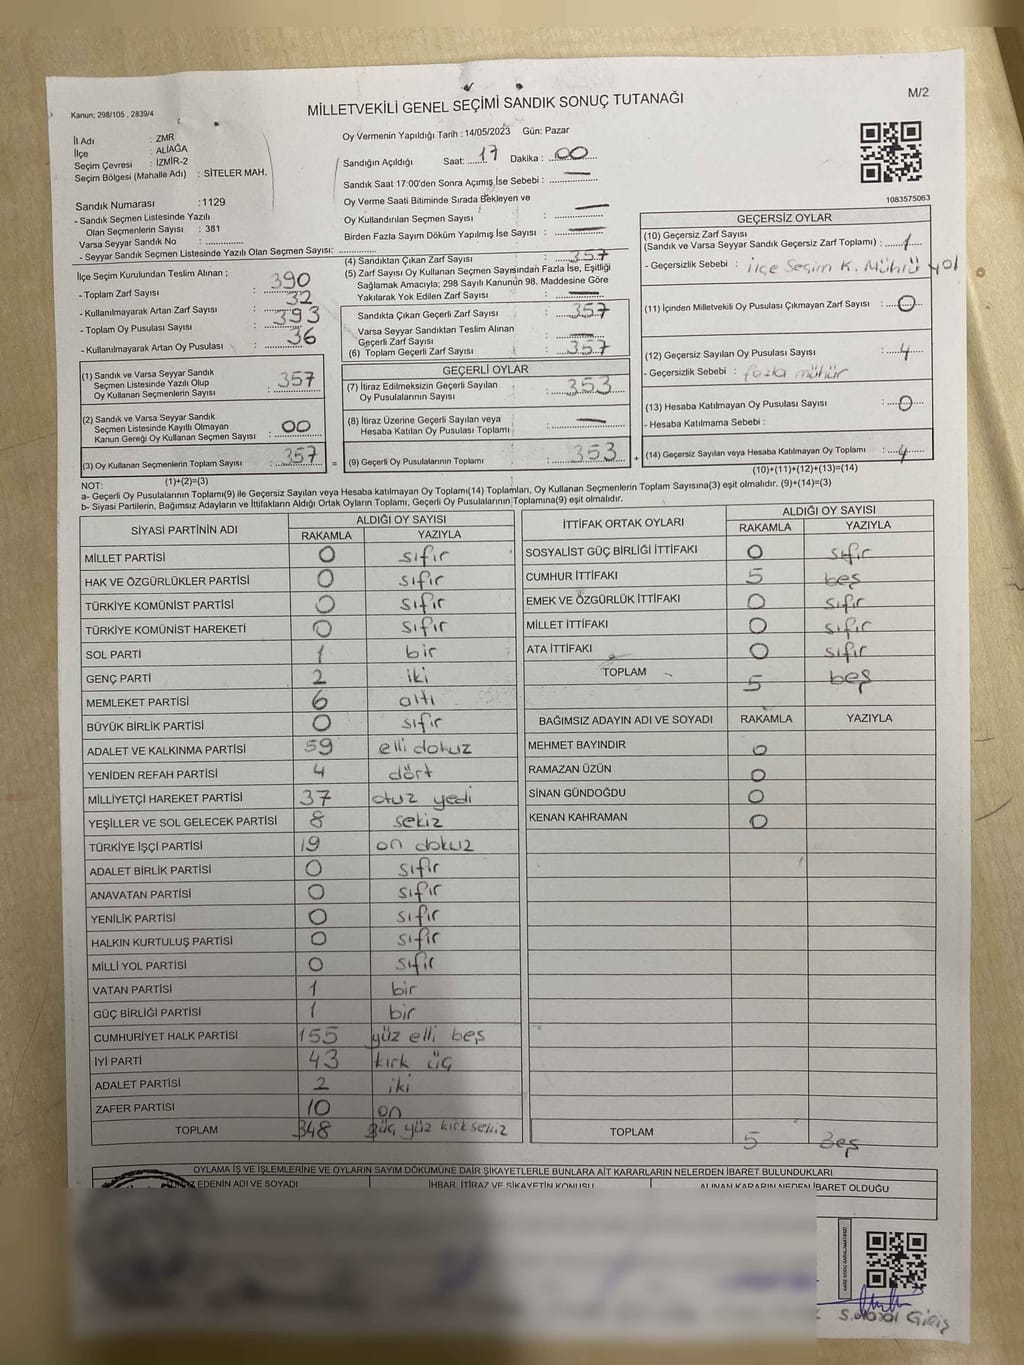 Kanun; 298/105 , 2839/4
MİLLETVEKİLİ GENEL SEÇİMİ SANDIK SONUÇ TUTANAĞI
M/2
İl Adı : ZMR
İlçe : ALİAĞA
Seçim Çevresi : İZMİR-2
Seçim Bölgesi (Mahalle Adı) : SİTELER MAH.
Sandık Numarası :1129
- Sandık Seçmen Listesinde Yazılı
Olan Seçmenlerin Sayısı : 381
Varsa Seyyar Sandık No :
- Seyyar Sandık Seçmen Listesinde Yazılı Olan Seçmen Sayısı:
İlçe Seçim Kurulundan Teslim Alınan ;
- Toplam Zarf Sayısı : 390
- Kullanılmayarak Artan Zarf Sayısı : 32
- Toplam Oy Pusulası Sayısı : 393
- Kullanılmayarak Artan Oy Pusulası : 36
(1) Sandık ve Varsa Seyyar Sandık
Seçmen Listesinde Yazılı Olup
Oy Kullanan Seçmenlerin Sayısı : 357
(2) Sandık ve Varsa Seyyar Sandık
Seçmen Listesinde Kayıtlı Olmayan
Kanun Gereği Oy Kullanan Seçmen Sayısı : 00
(3) Oy Kullanan Seçmenlerin Toplam Sayısı : 357
(1)+(2)=(3)
Oy Vermenin Yapıldığı Tarih : 14/05/2023 Gün: Pazar
Sandığın Açıldığı Saat: 17 Dakika : 00
Sandık Saat 17:00'den Sonra Açımış İse Sebebi :
Oy Verme Saati Bitiminde Sırada Bekleyen ve
Oy Kullandırılan Seçmen Sayısı :
Birden Fazla Sayım Döküm Yapılmış İse Sayısı :
(4) Sandıktan Çıkan Zarf Sayısı : 357
(5) Zarf Sayısı Oy Kullanan Seçmen Sayısından Fazla İse, Eşitliği
Sağlamak Amacıyla; 298 Sayılı Kanunun 98. Maddesine Göre
Yakılarak Yok Edilen Zarf Sayısı :
Sandıkta Çıkan Geçerli Zarf Sayısı : 357
Varsa Seyyar Sandıktan Teslim Alınan
Geçerli Zarf Sayısı :
(6) Toplam Geçerli Zarf Sayısı : 357
GEÇERLİ OYLAR
(7) İtiraz Edilmeksizin Geçerli Sayılan
Oy Pusulalarının Sayısı : 353
(8) İtiraz Üzerine Geçerli Sayılan veya
Hesaba Katılan Oy Pusulası Toplamı :
= (9) Geçerli Oy Pusulalarının Toplamı : 353 +
1083575063
GEÇERSİZ OYLAR
(10) Geçersiz Zarf Sayısı
(Sandık ve Varsa Seyyar Sandık Geçersiz Zarf Toplamı) : 1
- Geçersizlik Sebebi : ilçe Seçim K. Mührü yol
(11) İçinden Milletvekili Oy Pusulası Çıkmayan Zarf Sayısı : 0
(12) Geçersiz Sayılan Oy Pusulası Sayısı : 4
- Geçersizlik Sebebi : fazla mühür
(13) Hesaba Katılmayan Oy Pusulası Sayısı : 0
- Hesaba Katılmama Sebebi :
(14) Geçersiz Sayılan veya Hesaba Katılmayan Oy Toplamı : 4
(10)+(11)+(12)+(13)=(14)
NOT:
a- Geçerli Oy Pusulalarının Toplamı(9) ile Geçersiz Sayılan veya Hesaba katılmayan Oy Toplamı(14) Toplamları, Oy Kullanan Seçmenlerin Toplam Sayısına(3) eşit olmalıdır. (9)+(14)=(3)
b- Siyasi Partilerin, Bağımsız Adayların ve İttifakların Aldığı Ortak Oyların Toplamı, Geçerli Oy Pusulalarının Toplamına(9) eşit olmalıdır.
SİYASİ PARTİNİN ADI ALDIĞI OY SAYISI
RAKAMLA YAZIYLA
MİLLET PARTİSİ 0 sıfır
HAK VE ÖZGÜRLÜKLER PARTİSİ 0 sıfır
TÜRKİYE KOMÜNİST PARTİSİ 0 sıfır
TÜRKİYE KOMÜNİST HAREKETİ 0 sıfır
SOL PARTİ 1 bir
GENÇ PARTİ 2 iki
MEMLEKET PARTİSİ 6 altı
BÜYÜK BİRLİK PARTİSİ 0 sıfır
ADALET VE KALKINMA PARTİSİ 59 elli dokuz
YENİDEN REFAH PARTİSİ 4 dört
MİLLİYETÇİ HAREKET PARTİSİ 37 otuz yedi
YEŞİLLER VE SOL GELECEK PARTİSİ 8 sekiz
TÜRKİYE İŞÇİ PARTİSİ 19 on dokuz
ADALET BİRLİK PARTİSİ 0 sıfır
ANAVATAN PARTİSİ 0 sıfır
YENİLİK PARTİSİ 0 sıfır
HALKIN KURTULUŞ PARTİSİ 0 sıfır
MİLLİ YOL PARTİSİ 0 sıfır
VATAN PARTİSİ 1 bir
GÜÇ BİRLİĞİ PARTİSİ 1 bir
CUMHURİYET HALK PARTİSİ 155 yüz elli beş
İYİ PARTİ 43 kırk üç
ADALET PARTİSİ 2 iki
ZAFER PARTİSİ 10 on
TOPLAM 348 üç yüz kırk sekiz
İTTİFAK ORTAK OYLARI ALDIĞI OY SAYISI
RAKAMLA YAZIYLA
SOSYALİST GÜÇ BİRLİĞİ İTTİFAKI 0 sıfır
CUMHUR İTTİFAKI 5 beş
EMEK VE ÖZGÜRLÜK İTTİFAKI 0 sıfır
MİLLET İTTİFAKI 0 sıfır
ATA İTTİFAKI 0 sıfır
TOPLAM 5 beş
BAĞIMSIZ ADAYIN ADI VE SOYADI RAKAMLA YAZIYLA
MEHMET BAYINDIR 0
RAMAZAN ÜZÜN 0
SİNAN GÜNDOĞDU 0
KENAN KAHRAMAN 0
TOPLAM 5 Beş
OYLAMA İŞ VE İŞLEMLERİNE VE OYLARIN SAYIM DÖKÜMÜNE DAİR ŞİKAYETLERLE BUNLARA AİT KARARLARIN NELERDEN İBARET BULUNDUKLARI
EDENİN ADI VE SOYADI İHBAR, İTİRAZ VE ŞİKAYETİN KONUSU ALINAN KARARIN NEDEN İBARET OLDUĞU
KARE KODU KARALAMAYINIZ!
Giriş